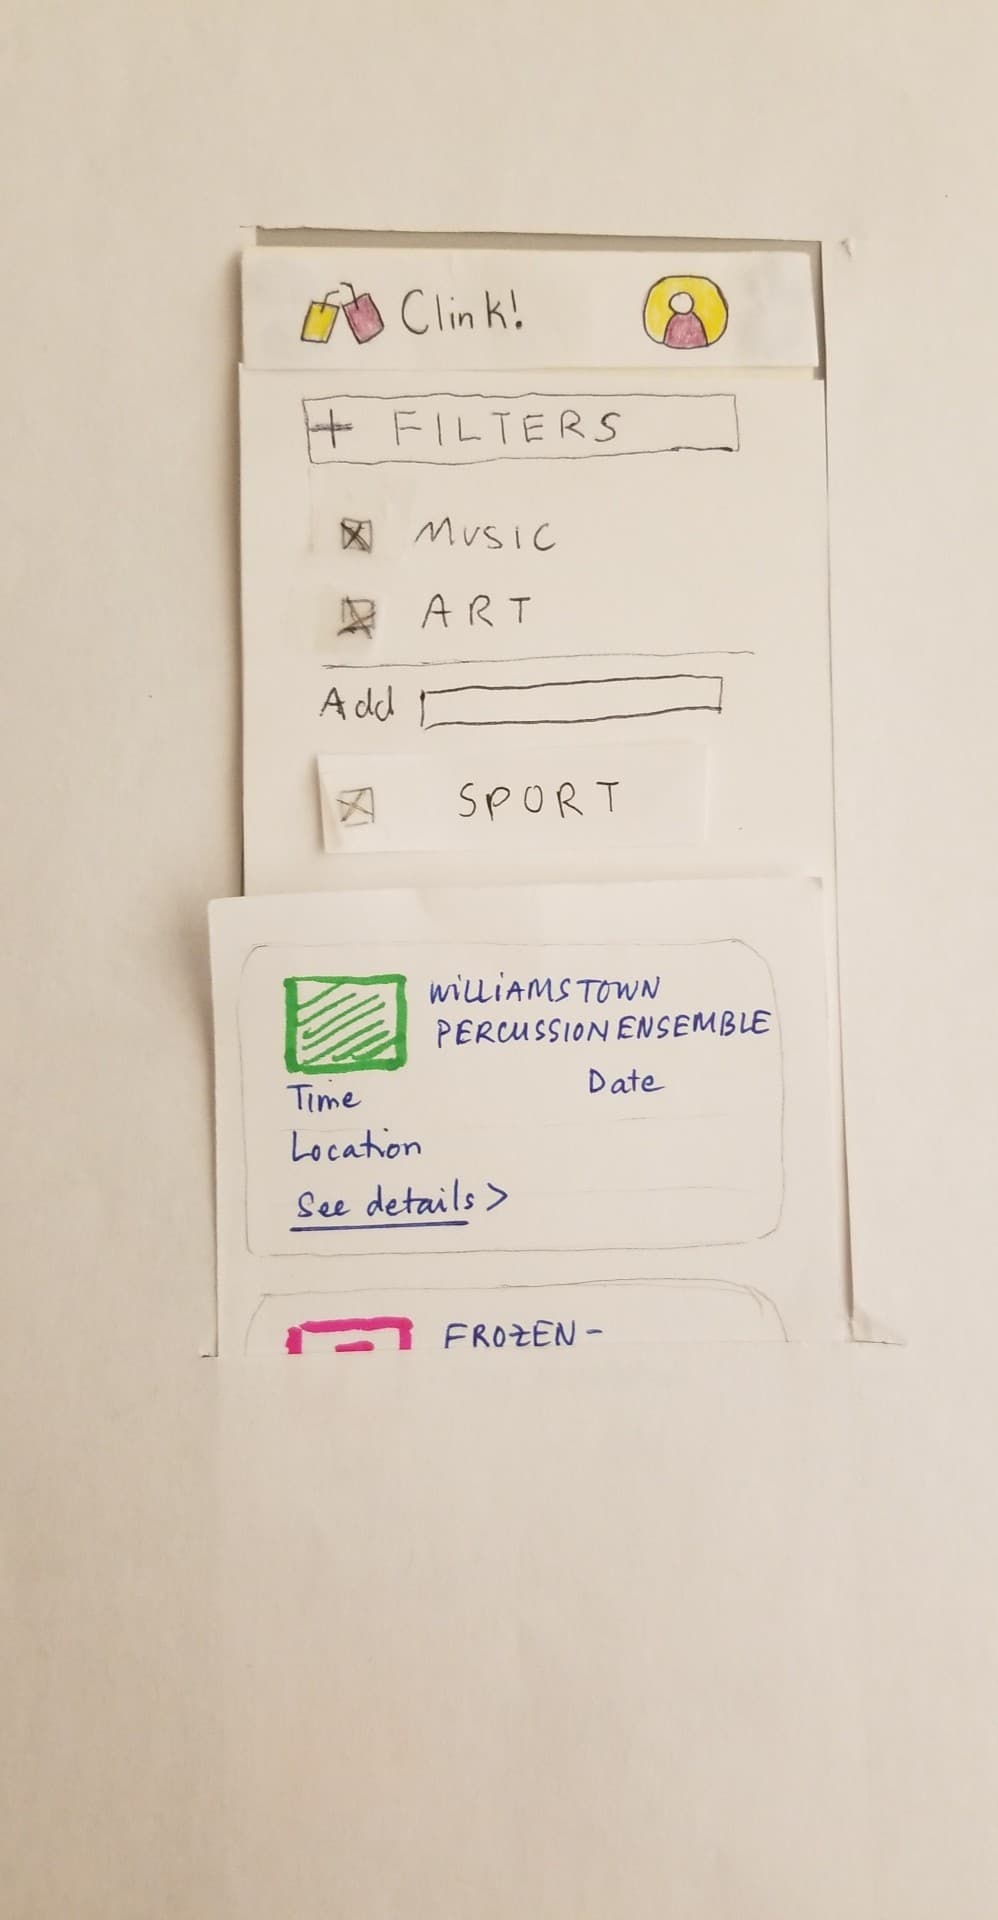 Clink!
+ FILTERS
MUSIC
ART
Add
SPORT
WILLIAMSTOWN
PERCUSSION ENSEMBLE
Time Date
Location
See details >
FROZEN-